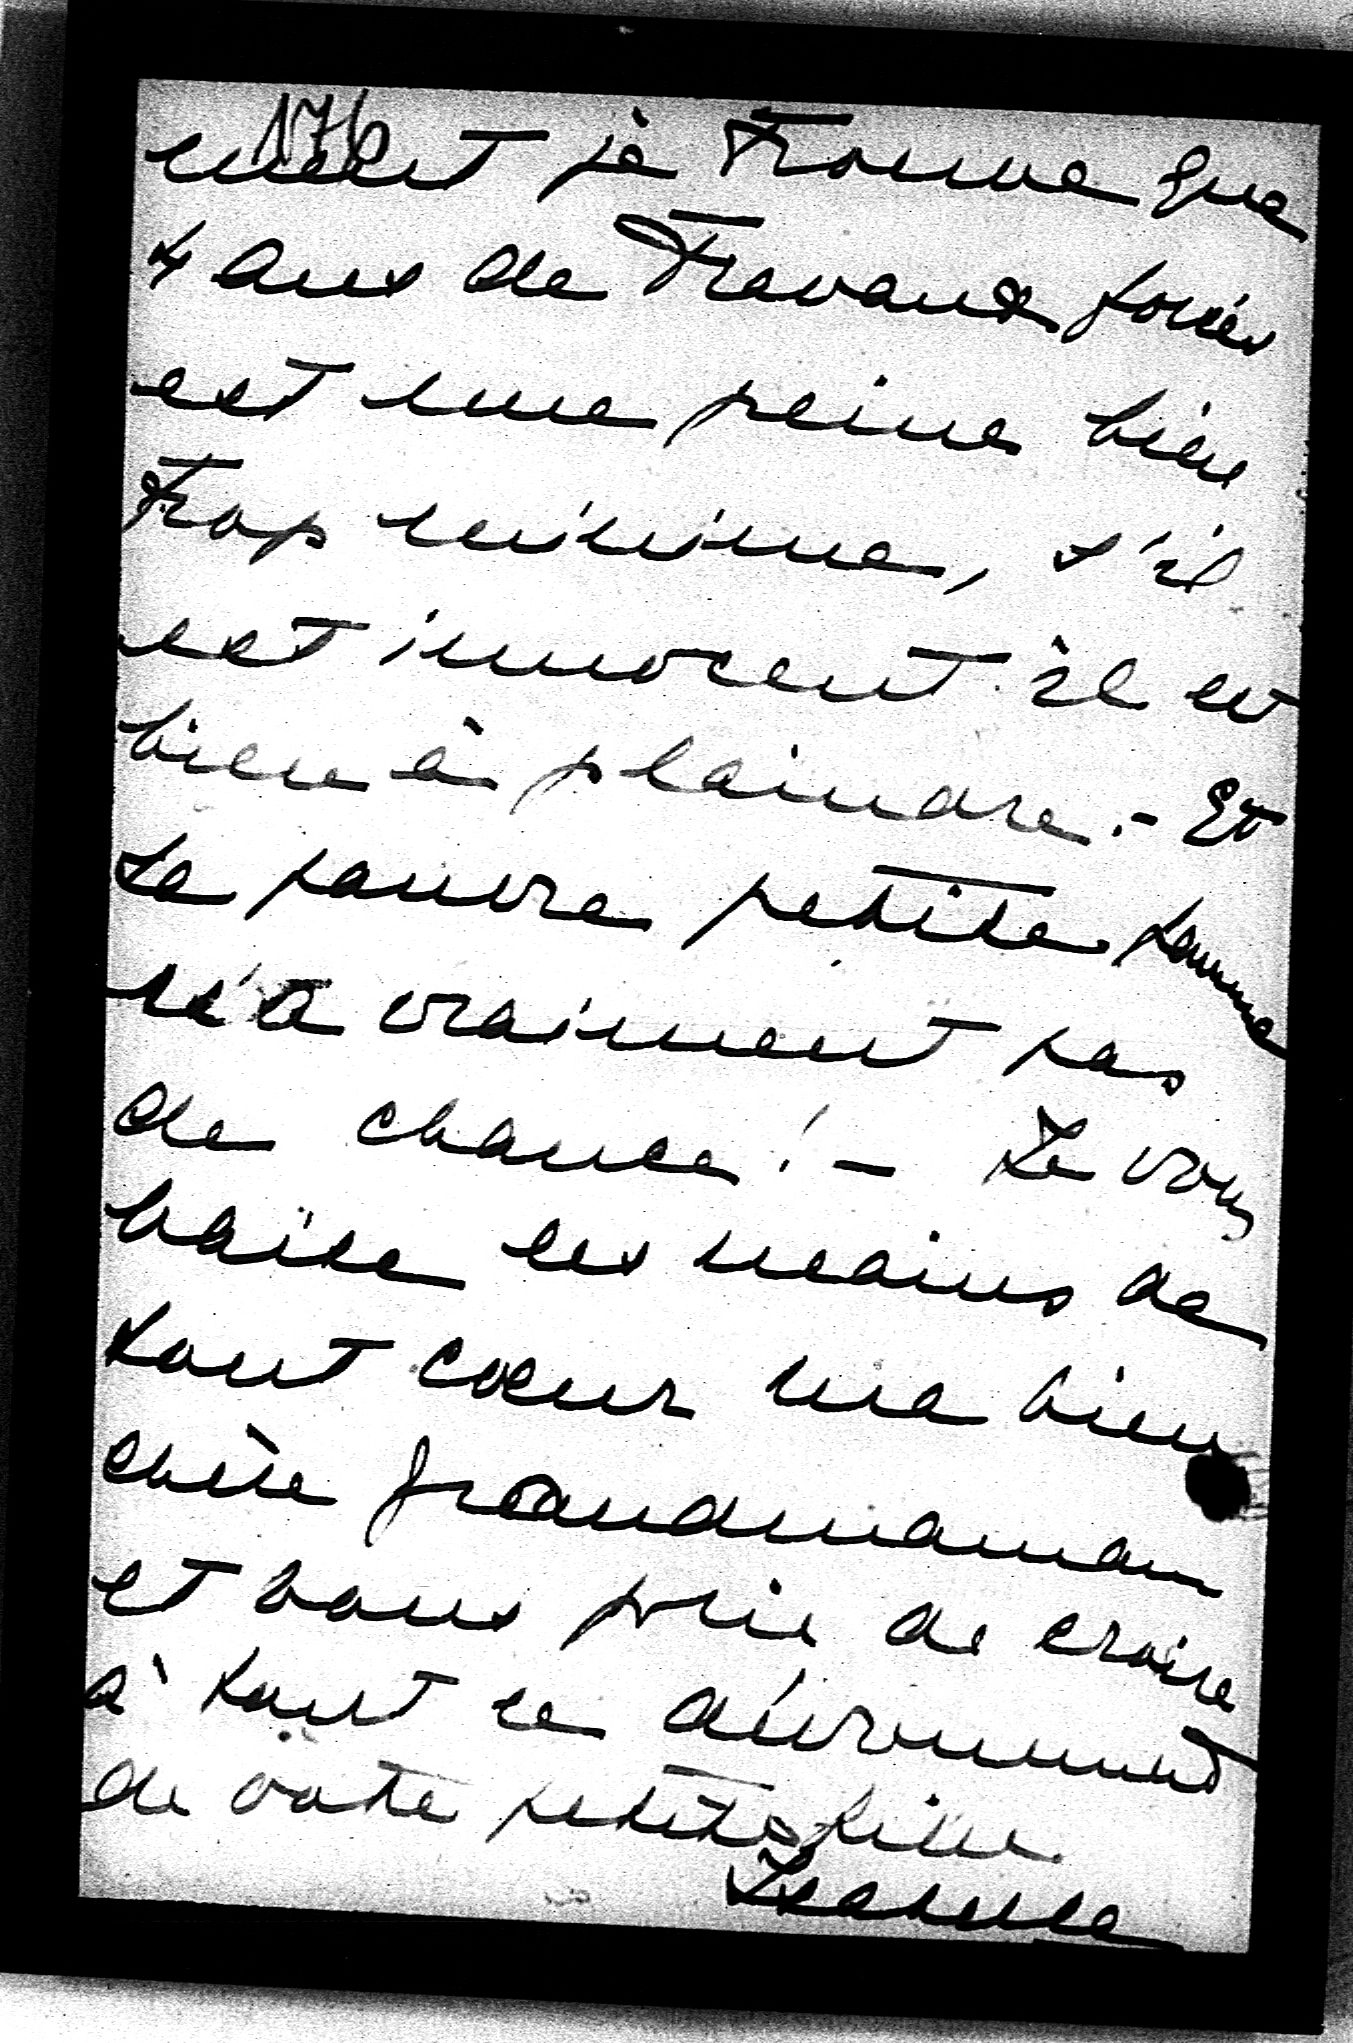 176
ment je trouve que
4 ans de travaux forcés
est une peine bien
trop minime, s'il
est innocent il est
bien à plaindre. - Et
sa pauvre petite femme
n'a vraiment pas
de chance! - Je vous
baise les mains de
tout cœur ma bien
chère grandmaman
et vous prie de croire
à tout le dévouement
de votre petite fille
Isabelle